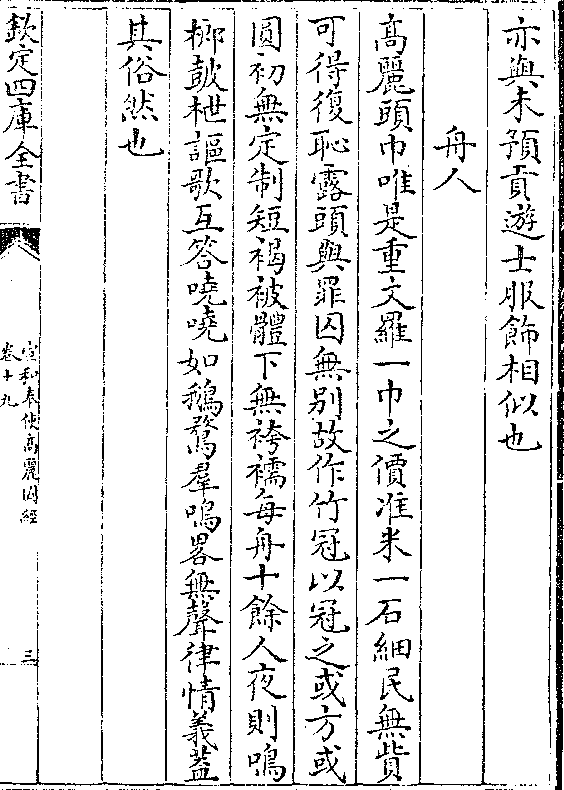 亦與未預貢遊士服飾相似也
舟人
髙麗頭巾唯是重文羅一巾之價准米一石細民無貲
可得復恥露頭與罪囚無别故作竹冠以冠之或方或
圓初無定制短褐被體下無袴襦每舟十餘人夜則鳴
榔鼓枻謳歌互答嘵嘵如鵝鶩羣鳴畧無聲律情義葢
其俗然也
欽定四庫全書
宣和奉使高麗圖經
卷十九
三